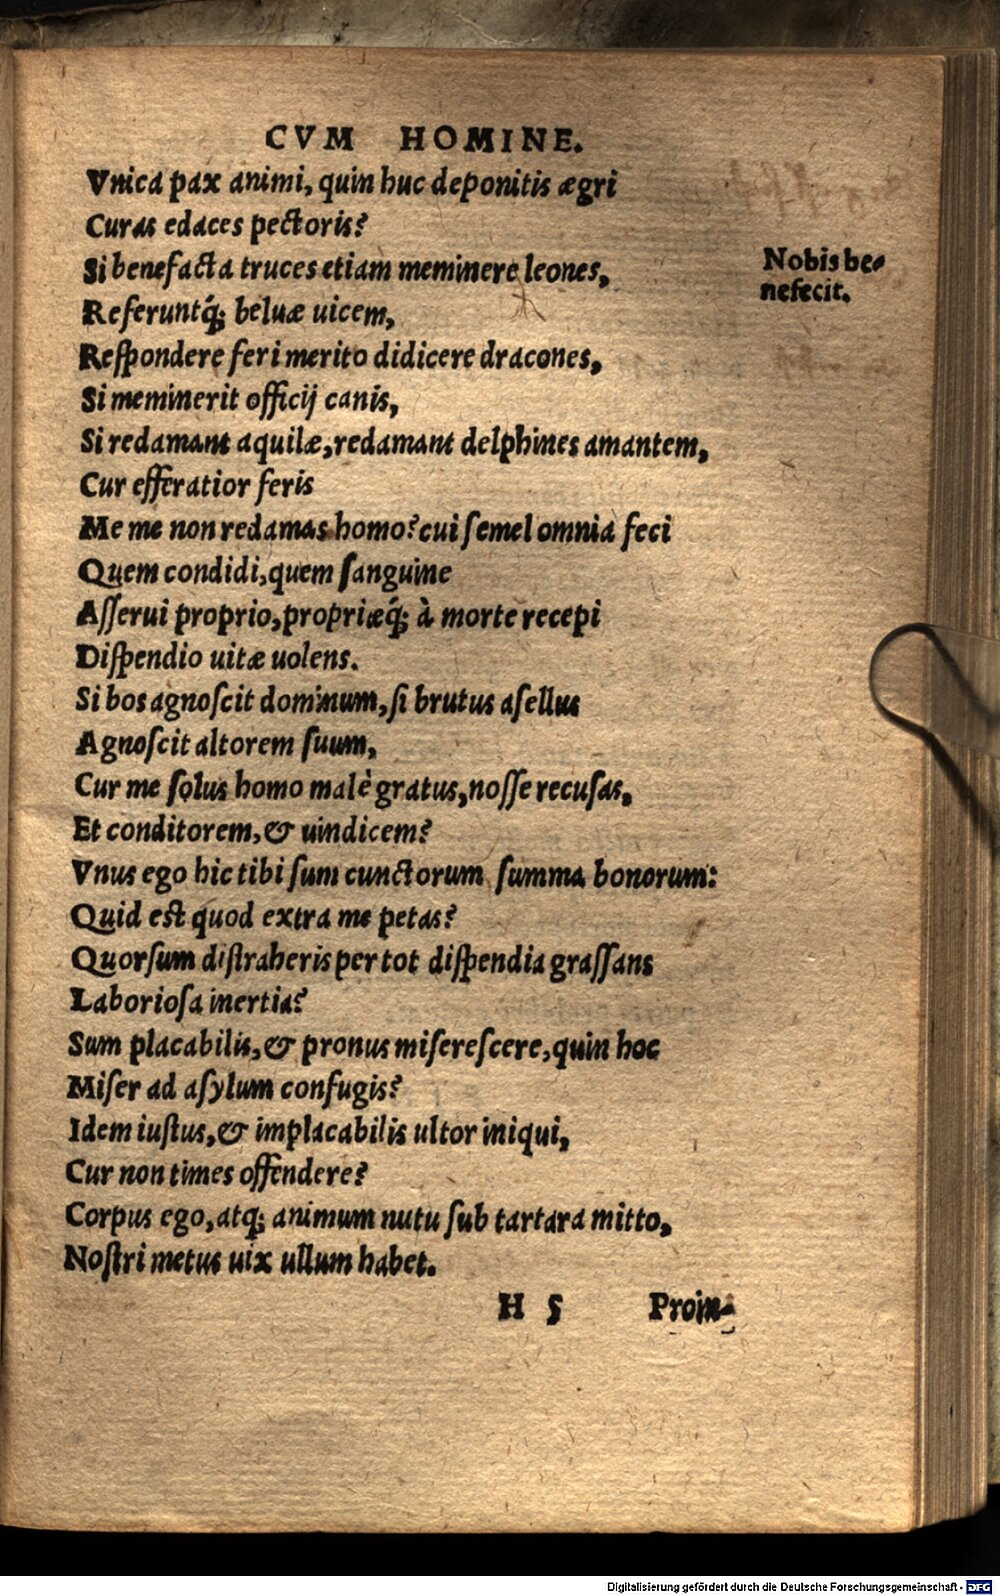 CVM HOMINE.
Vnica pax animi, quin huc deponitis ægri
Curas edaces pectoris?
Si benefacta truces etiam meminere leones,
Referuntq́; beluæ uicem,
Respondere feri merito didicere dracones,
Si meminerit officij canis,
Si redamant aquilæ, redamant delphines amantem,
Cur efferatior feris
Me me non redamas homo? cui semel omnia feci
Quem condidi, quem sanguine
Asserui proprio, propriæq́; à morte recepi
Dispendio uitæ uolens.
Si bos agnoscit dominum, si brutus asellus
Agnoscit altorem suum,
Cur me solus homo malè gratus, nosse recusas,
Et conditorem, & uindicem?
Vnus ego hic tibi sum cunctorum summa bonorum:
Quid est quod extra me petas?
Quorsum distraheris per tot dispendia grassans
Laboriosa inertia?
Sum placabilis, & pronus miserescere, quin hoc
Miser ad asylum confugis?
Idem iustus, & implacabilis ultor iniqui,
Cur non times offendere?
Corpus ego, atq; animum nutu sub tartara mitto,
Nostri metus uix ullum habet.
Nobis be-
nefecit.
H 5 Proin-
Digitalisierung gefördert durch die Deutsche Forschungsgemeinschaft - DFG